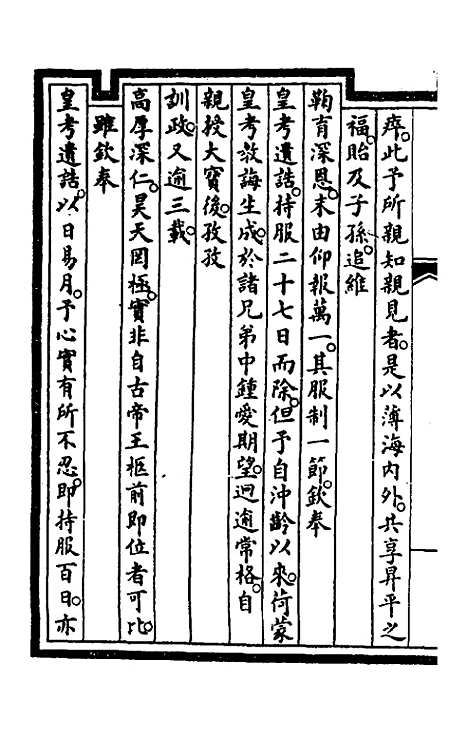 瘁。此予所親知親見者。是以薄海内外。共享昇平之
福。貽及子孫。追維
鞠育深恩。末由仰報萬一。其服制一節。欽奉
皇考遺誥。持服二十七日而除。但予自沖齡以來。荷蒙
皇考教誨生成。於諸兄弟中鍾愛期望。迥逾常格。自
親授大寶後。孜孜
訓政。又逾三載。
高厚深仁。昊天罔極。實非自古帝王柩前即位者可比。
雖欽奉
皇考遺誥。以日易月。予心實有所不忍。即持服百日。亦